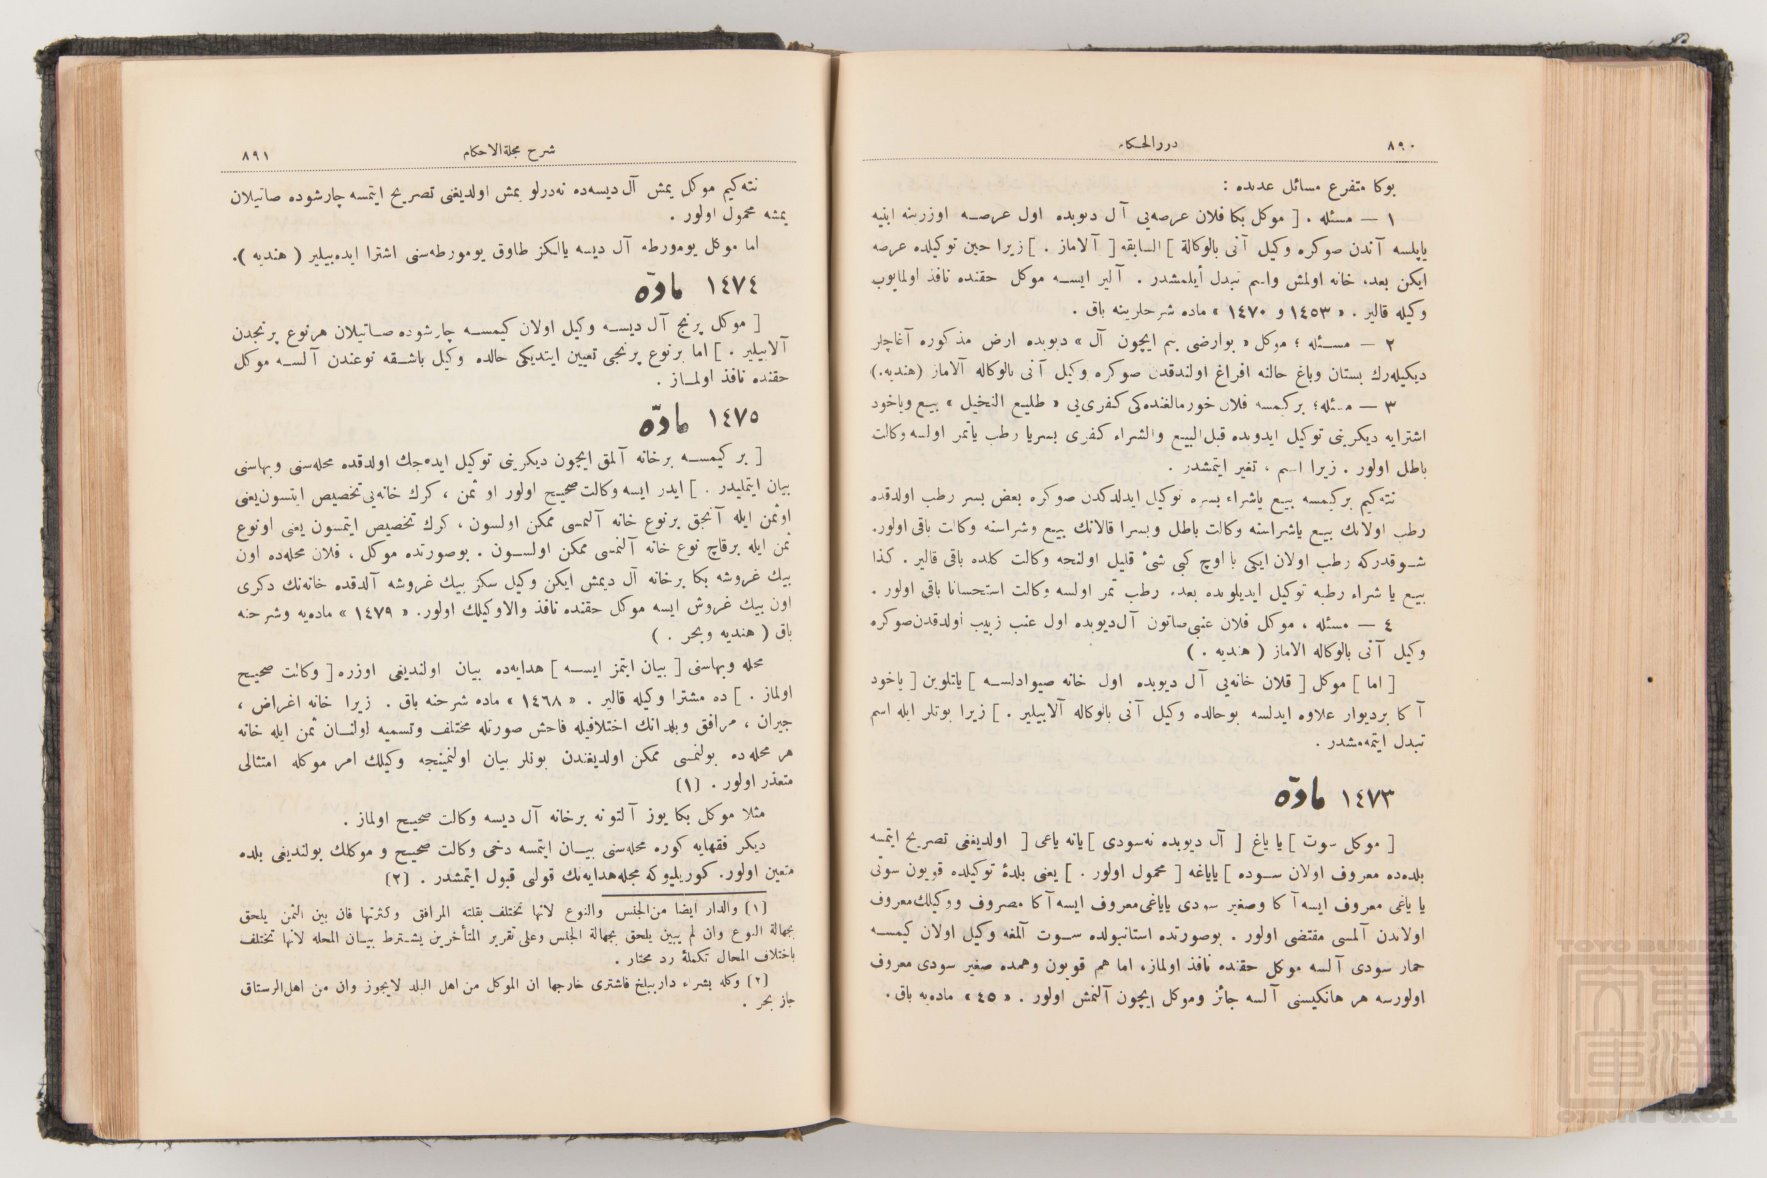 ٨٩٠
دررالحكام
بوكا متفرع مسائل عديده :
١ — مسئله . [ موكل بكا فلان عرصه‌يى آل ديوبده اول عرصــه اوزرينه ابنيه
ياپلسه آندن صوكره وكيل آنى بالوكالة ] السابقه [ آلاماز . ] زيرا حين توكيلده عرصه
ايكن بعده خانه اولمش واسم تبدل أيلمشدر . آلير ايســه موكل حقنده نافذ اولمايوب
وكيله قالير . « ١٤٥٣ و ١٤٧٠ » ماده شرحلرينه باق .
٢ — مســئله ؛ موكل « بوارضى بنم ايچون آل » ديوبده ارض مذكوره آغاچلر
ديكيله‌رك بستان وباغ حالنه افراغ اولندقدن صوكره وكيل آنى بالوكاله آلاماز (هنديه.)
٣ — مسئله؛ بركيمسه فلان خورمالغنده‌كى كفرى‌يى « طليع النخيل » بيع وياخود
اشترايه ديكرينى توكيل ايدوبده قبل‌البيع والشراء كفرى بسريا رطب ياتمر اولسه وكالت
باطل اولور . زيرا اسم ، تغير ايتمشدر .
نته‌كيم بركيمسه بيع ياشراء بسره توكيل ايدلدكدن صوكره بعض بسر رطب اولدقده
رطب اولانك بيع ياشراسنه وكالت باطل وبسرا قالانك بيع وشراسنه وكالت باقى اولور.
شــوقدركه رطب اولان ايكى يا اوچ كبى شئ قليل اولنجه وكالت كلده باقى قالير . كذا
بيع يا شراء رطبه توكيل ايديلوبده بعده رطب تمر اولسه وكالت استحسانا باقى اولور .
٤ — مسئله ، موكل فلان عنبى‌صاتون آل‌ديوبده اول عنب زبيب اولدقدن‌صوكره
وكيل آنى بالوكاله الاماز ( هنديه . )
[ اما ] موكل [ فلان خانه‌يى آل ديوبده اول خانه صيوادلســه ] ياتلوين [ ياخود
آ كا برديوار علاوه ايدلسه بوحالده وكيل آنى بالوكاله آلابيلير . ] زيرا بونلر ايله اسم
تبدل ايتمه‌مشدر .
١٤٧٣ مادّه
[ موكل سوت ] يا ياغ [ آل ديوبده نه‌سودى ] يانه ياغى [ اولديغنى تصريح ايتمسه
بلده‌ده معروف اولان ســوده ] ياياغه [ محمول اولور . ] يعنى بلدهٔ توكيلده قويون سوتى
يا ياغى معروف ايسه آ كا وصغير سودى ياياغى‌معروف ايسه آ كا مصروف ووكيلك‌معروف
اولاندن آلمسى مقتضى اولور . بوصورتده استانبولده ســوت آلمغه وكيل اولان كيمســه
حمار سودى آلسه موكل حقنده نافذ اولماز، اما هم قويون وهمده صغير سودى معروف
اولورسه هر هانكيسنى آلسه جائز وموكل ايچون آلنمش اولور . « ٤٥ » ماده‌يه باق .
شرح مجلةالاحكام
٨٩١
نته‌كيم موكل يمش آل ديسه‌ده نه‌درلو يمش اولديغنى تصريح ايتمسه چارشوده صاتيلان
يمشه محمول اولور .
اما موكل يومورطه آل ديسه يالكز طاوق يومورطه‌سنى اشترا ايده‌بيلير ( هنديه ).
١٤٧٤ مادّه
[ موكل پرنج آل ديســه وكيل اولان كيمســه چارشوده صــاتيلان هرنوع پرنجدن
آلابيلير . ] اما برنوع پرنجى تعيين ايتديكى حالده وكيل باشــقه نوعندن آلســه موكل
حقنده نافذ اولمــاز .
١٤٧٥ مادّه
[ بر كيمســه برخانه آلمق ايچون ديكرينى توكيل ايده‌جك اولدقده محله‌سنى وبهاسنى
بيان ايتمليدر . ] ايدر ايسه وكالت‌صحيح اولور او ثمن ، كرك خانه‌يى‌تخصيص ايتسون‌يعنى
اوثمن ايله آنجق برنوع خانه آلنمسى ممكن اولسون ، كرك تخصيص ايتمسون يعنى اونوع
ثمن ايله برقاچ نوع خانه آلنمسى ممكن اولســون . بوصورتده موكل ، فلان محله‌ده اون
بيك غروشه بكا برخانه آل ديمش ايكن وكيل سكز بيك غروشه آلدقده خانه‌نك دكرى
اون بيك غروش ايسه موكل حقنده نافذ والاوكيلك اولور. « ١٤٧٩ » ماده‌يه وشرحنه
باق ( هنديه وبحر . )
محله وبهاسنى [ بيان ايتمز ايســه ] هدايه‌ده بيان اولنديغى اوزره [ وكالت صحيــح
اولماز . ] ده مشترا وكيله قالير . « ١٤٦٨ » ماده شرحنه باق . زيرا خانه اغراض ،
جيران ، مرافق وبلدانك اختلافيله فاحش صورتله مختلف وتسميه اولنــان ثمن ايله خانه
هر محله‌ده بولنمسى ممكن اولديغندن بونلر بيان اولنمينجه وكيلك امر موكله امتثالى
متعذر اولور . (١)
مثلا موكل بكا يوز آلتونه برخانه آل ديسه وكالت صحيح اولماز .
ديكر فقهايه كوره محله‌سنى بيــان ايتمسه دخى وكالت صحيح و موكلك بولنديغى بلده
متعين اولور. كوريليوركه مجله‌هدايه‌نك قولنى قبول ايتمشدر . (٢)
(١) والدار ايضا من‌الجنس والنوع لانها تختلف بقلته المرافق وكثرتها فان بين الثمن يلحق
بجهالة النوع وان لم يبين يلحق بجهالة الجنس وعلى تقرير المتأخرين يشــترط بيــان المحله لانها تختلف
باختلاف المحال تكملهٔ رد محتار .
(٢) وكله بشراء دارببلخ فاشترى خارجها ان الموكل من اهل البلد لايجوز وان من اهل‌الرستاق
جاز بحر .
TOYO BUNKO
TOYO BUNKO